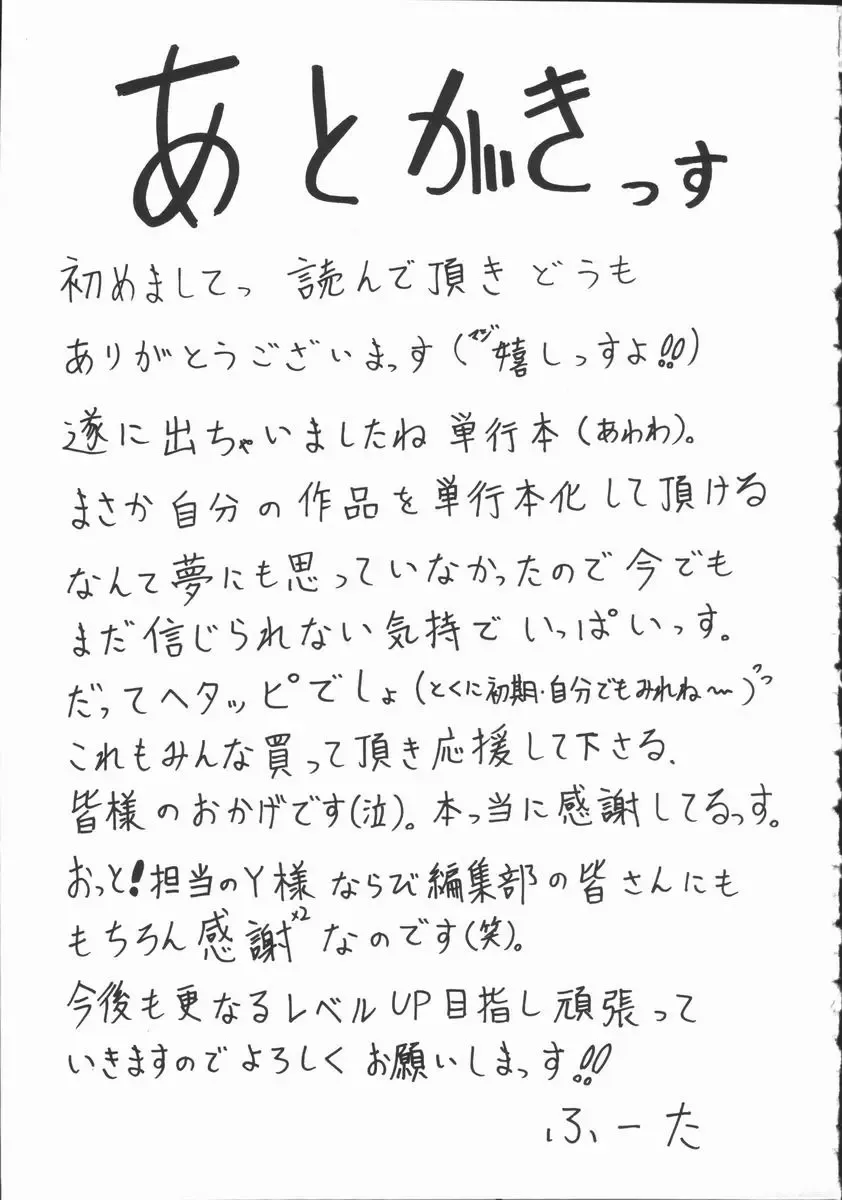 あとがきっす
初めましてっ 読んで頂き どうも
ありがとうございまっす(マジ嬉しっすよ!!)
遂に出ちゃいましたね 単行本(あわわ)。
まさか自分の作品を単行本化して頂ける
なんて夢にも思っていなかったので今でも
まだ信じられない気持でいっぱいっす。
だってヘタッピでしょ(とくに初期・自分でもみれね〜)
これもみんな買って頂き応援して下さる、
皆様のおかげです(泣)。本っ当に感謝してるっす。
おっと!担当のY様ならび編集部の皆さんにも
もちろん感謝×2なのです(笑)。
今後も更なるレベルUP目指し頑張って
いきますのでよろしくお願いしまっす!!
ふーた